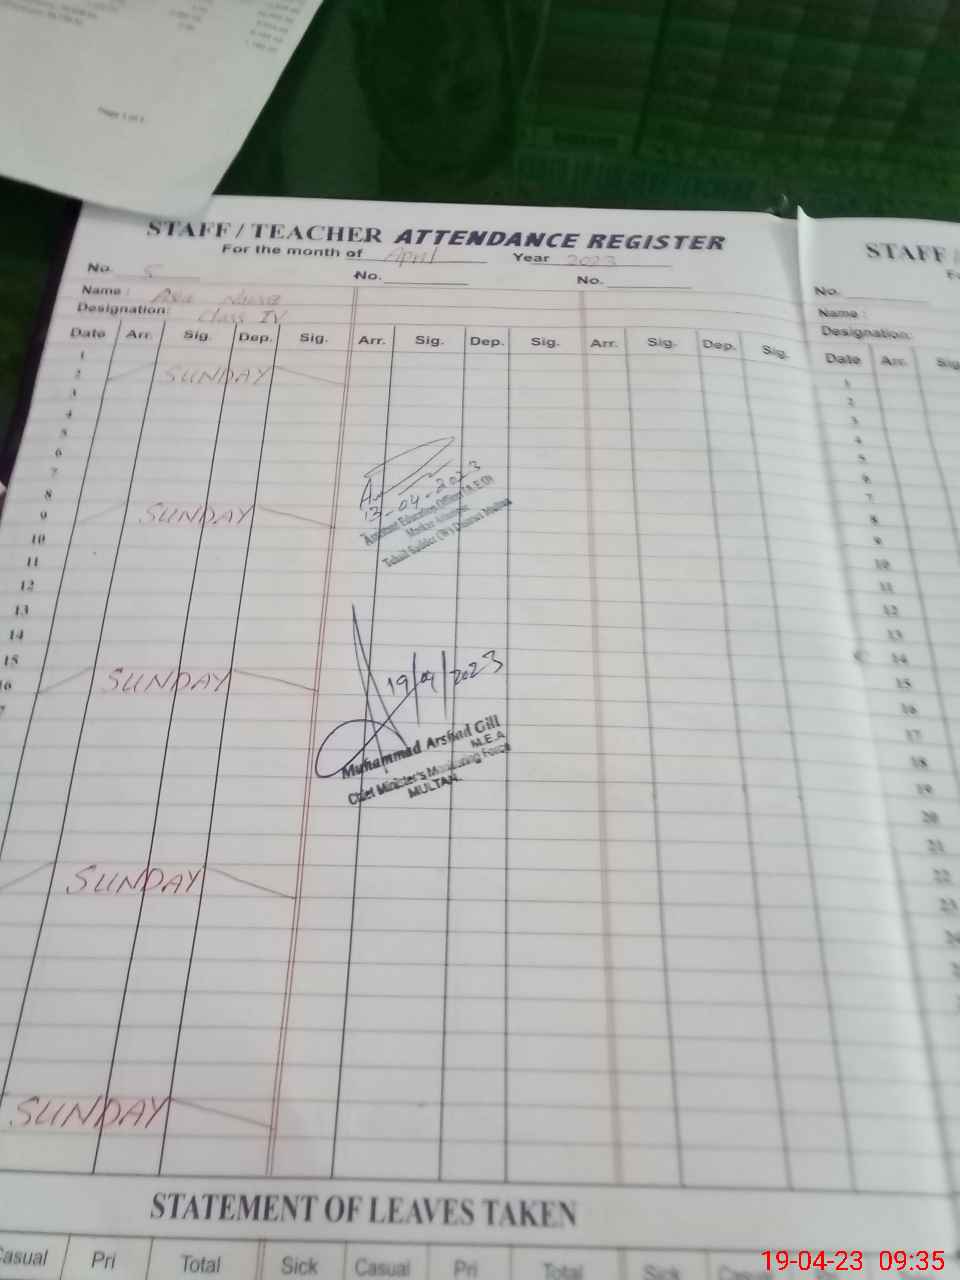 Page 1 of 1
STAFF / TEACHER ATTENDANCE REGISTER
For the month of April Year 2023
No. 5 No. No.
Name :
Designation: Class IV
Date Arr. Sig. Dep. Sig. Arr. Sig. Dep. Sig. Arr. Sig. Dep. Sig.
1
2 SUNDAY
3
4
5
6
7
8
9 SUNDAY
10
11
12
13
14
15
16 SUNDAY
7
SUNDAY
SUNDAY
13-04-2023
Assistant Education Officer (A.E.O)
Markaz
Tehsil Sadder (W) District Multan
19/04/2023
Muhammad Arshad Gill
M.E.A
Chief Minister's Monitoring Force
MULTAN.
STATEMENT OF LEAVES TAKEN
Casual Pri Total Sick Casual Pri Total Sick
STAFF /
No.
Name :
Designation:
Date Arr. Sig
1
2
3
4
5
6
7
8
9
10
11
12
13
14
15
16
17
18
19
20
21
22
23
19-04-23 09:35